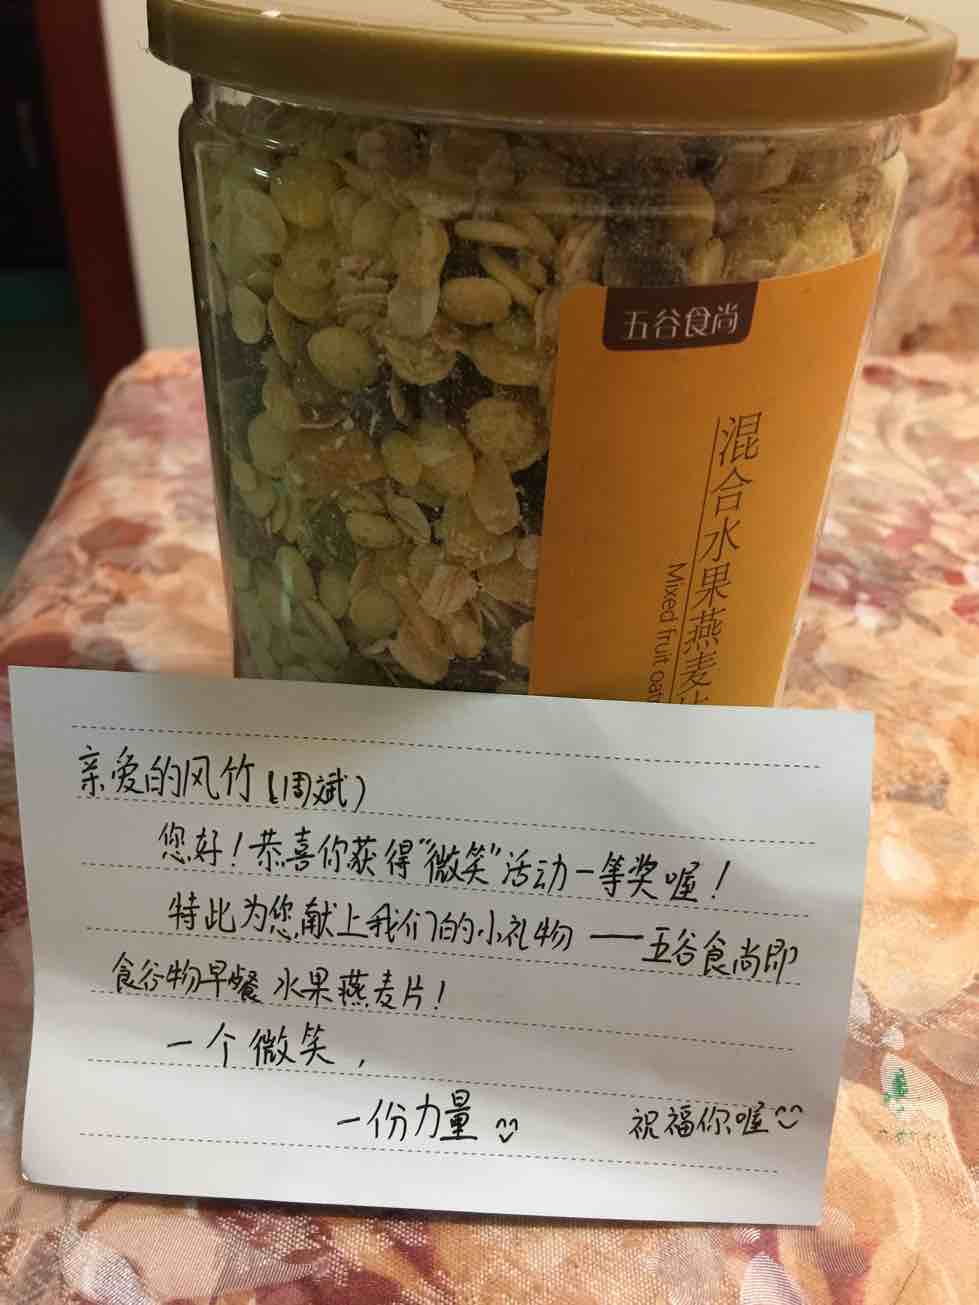 五谷食尚
混合水果燕麦
Mixed fruit oat
亲爱的风竹(周斌)
您好!恭喜你获得"微笑"活动一等奖喔!
特此为您献上我们的小礼物——五谷食尚即
食谷物早餐 水果燕麦片!
一个微笑,
一份力量
祝福你喔